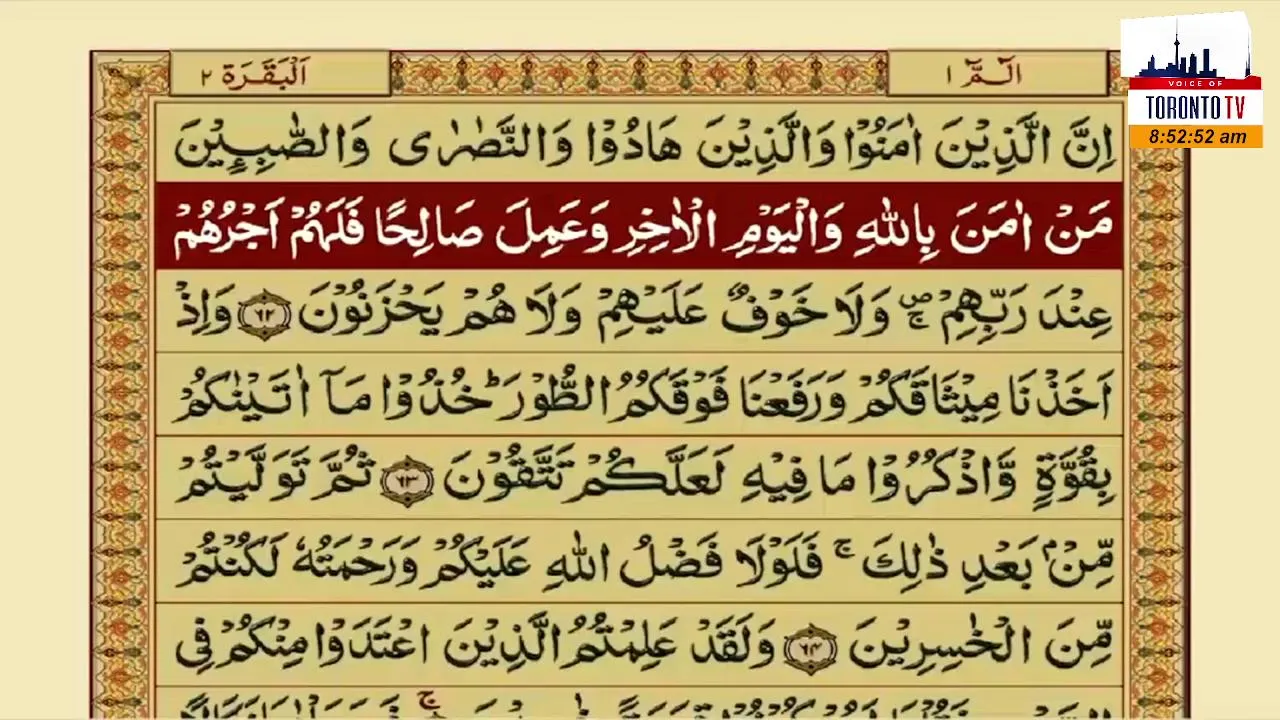 الٓمّٓ ١
اَلْبَقَرَة ٢
VOICE OF
TORONTO TV
8:52:52 am
اِنَّ الَّذِيْنَ اٰمَنُوْا وَالَّذِيْنَ هَادُوْا وَالنَّصٰرٰى وَالصّٰبِـِٕيْنَ
مَنْ اٰمَنَ بِاللّٰهِ وَالْيَوْمِ الْاٰخِرِ وَعَمِلَ صَالِحًا فَلَهُمْ اَجْرُهُمْ
عِنْدَ رَبِّهِمْ ۚۖ وَلَا خَوْفٌ عَلَيْهِمْ وَلَا هُمْ يَحْزَنُوْنَ ۝٦٢ وَاِذْ
اَخَذْنَا مِيْثَاقَكُمْ وَرَفَعْنَا فَوْقَكُمُ الطُّوْرَ ؕ خُذُوْا مَآ اٰتَيْنٰكُمْ
بِقُوَّةٍ وَّاذْكُرُوْا مَا فِيْهِ لَعَلَّكُمْ تَتَّقُوْنَ ۝٦٣ ثُمَّ تَوَلَّيْتُمْ
مِّنْۢ بَعْدِ ذٰلِكَ ۚ فَلَوْلَا فَضْلُ اللّٰهِ عَلَيْكُمْ وَرَحْمَتُهٗ لَكُنْتُمْ
مِّنَ الْخٰسِرِيْنَ ۝٦٤ وَلَقَدْ عَلِمْتُمُ الَّذِيْنَ اعْتَدَوْا مِنْكُمْ فِى